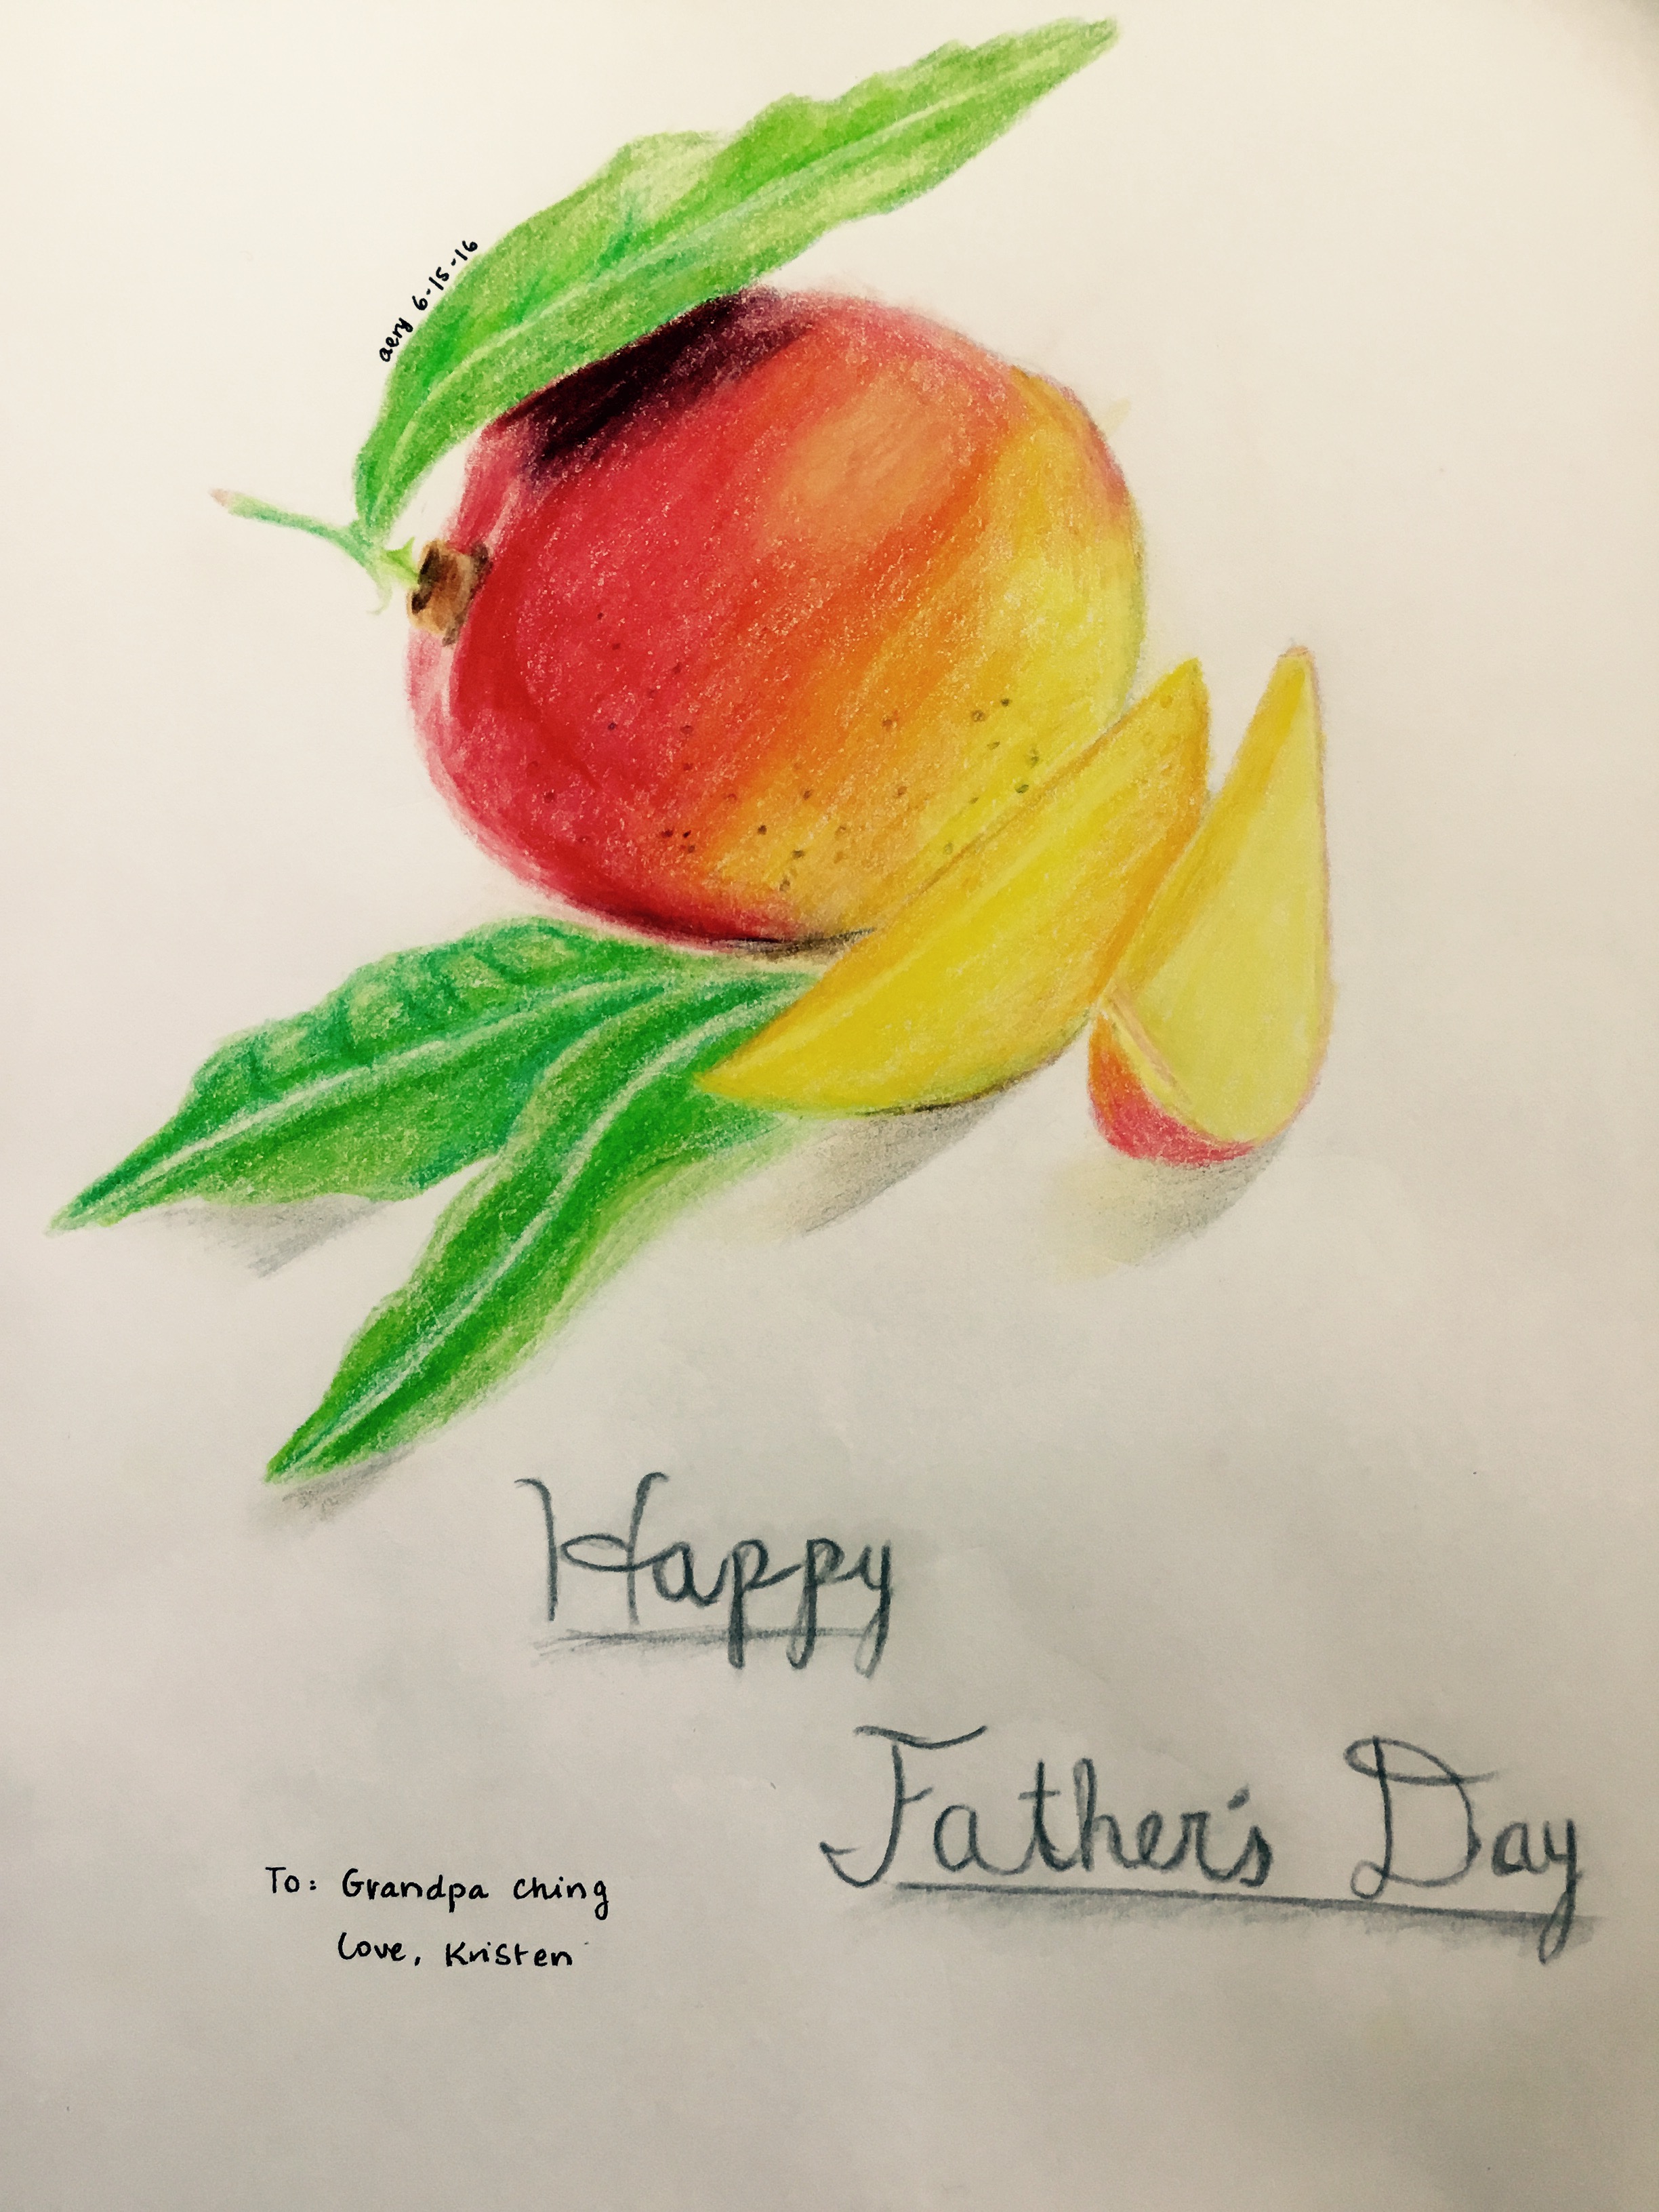 aery 6-15-16
Happy
Father's Day
To: Grandpa Ching
Love, Kristen